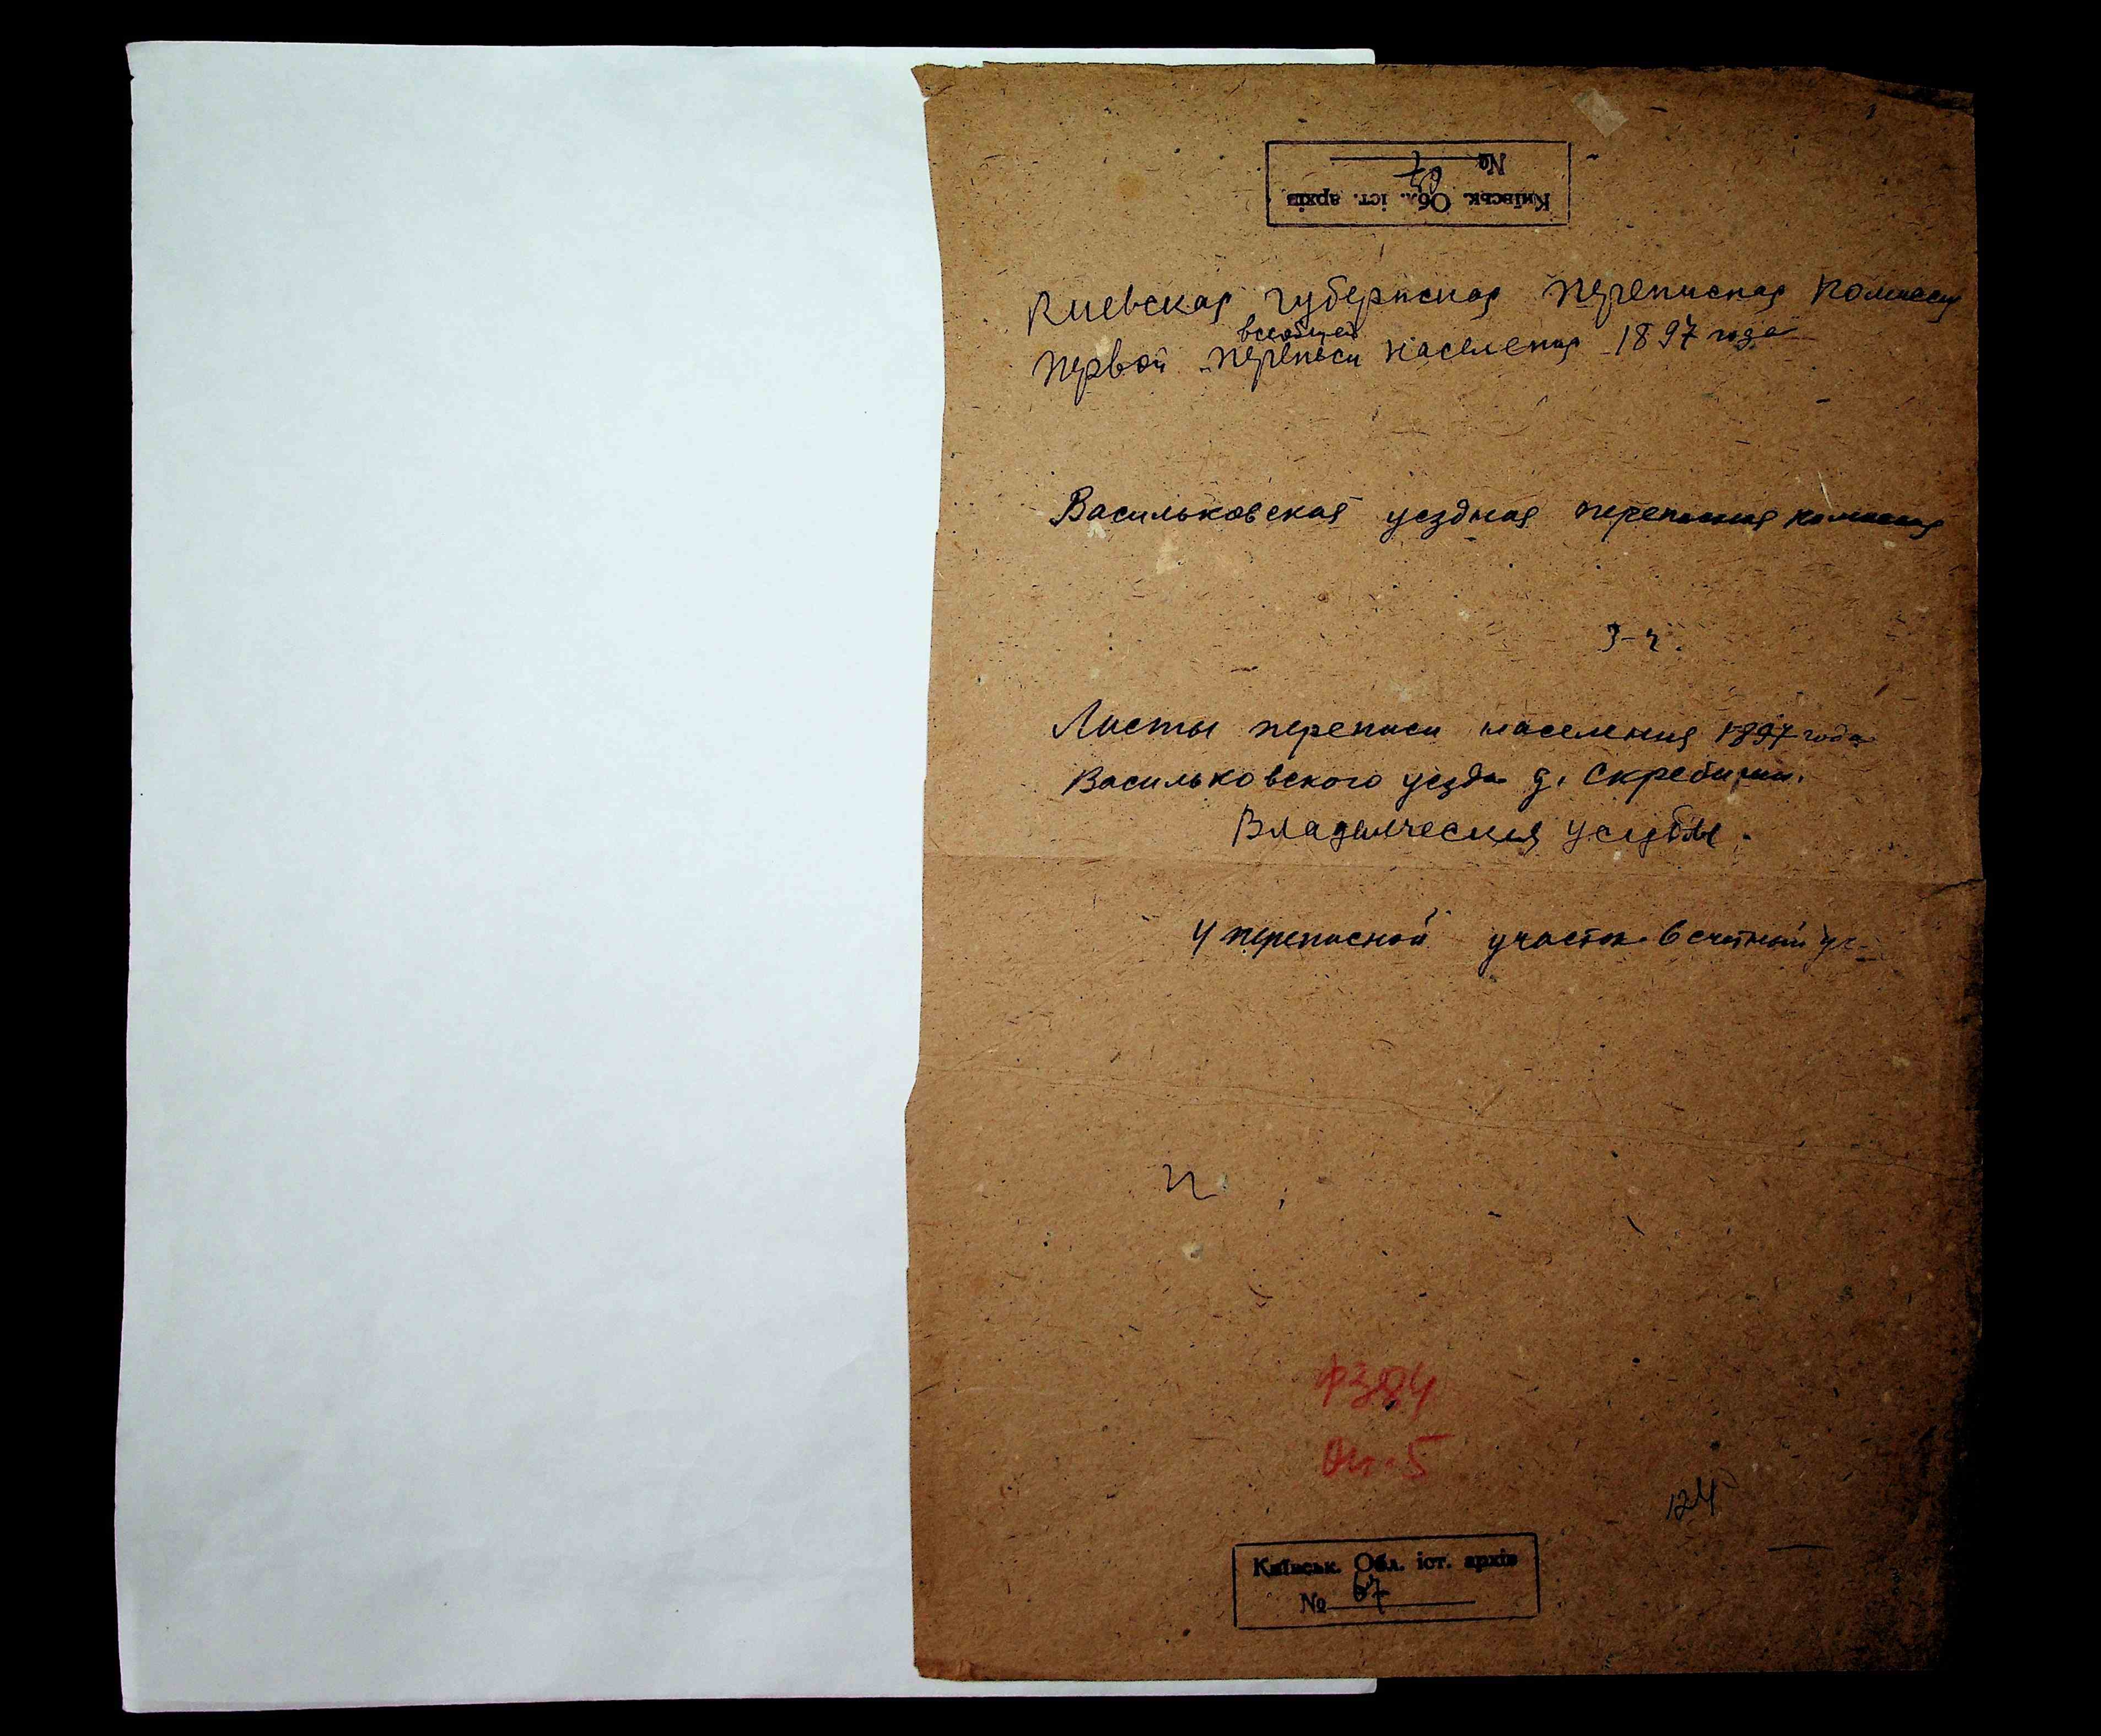 Київськ. Обл. іст. архів
№ 67
Киевская губернская переписная комиссия
всеобщей
Первой переписи населения 1897 года
Васильковская уездная переписная комиссия
Листы переписи населения 1897 года
Васильковского уезда д. Скребиши.
Владельческая усадьба.
4 переписной участок 6 счетный уч-
ф 384
Оп. 5
124
Київськ. Обл. іст. архів
№ 67